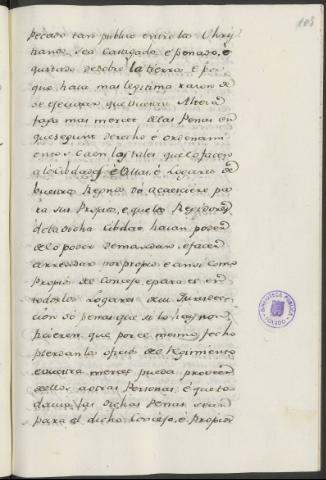 103
pecado tan publico entre los Chris-
tianos sea castigado, é penado, é
quitado de sobre la tierra é por
que haia mas legitima razon de
se ejecutar que Vuestra Alteza
faga mas merced de las Penas en
que segund derecho é ordenami-
entos caen los tales que lo facen
a lo Cibdades, é Villas, é Logares de
vuestros Regnos do acaesciere pa-
ra sus Propios, e que los Regidores
de la dicha Cibdat haian poder
de lo poder demandar, e facer
arrendar por propio, e ansi como
Propio de Concejo, e para es en
todos los Logares de su Jurisdic-
cion só pena que si lo hai no
ficieren que por ese mesmo fecho
pierdan los oficios de Regimiento
e vuestra merced pueda proveer
dellos, a otras Personas, é que to-
davia las dichas Penas sean
para el dicho Concejo, é Propios
BIBLIOTECA PUBLICA
TOLEDO